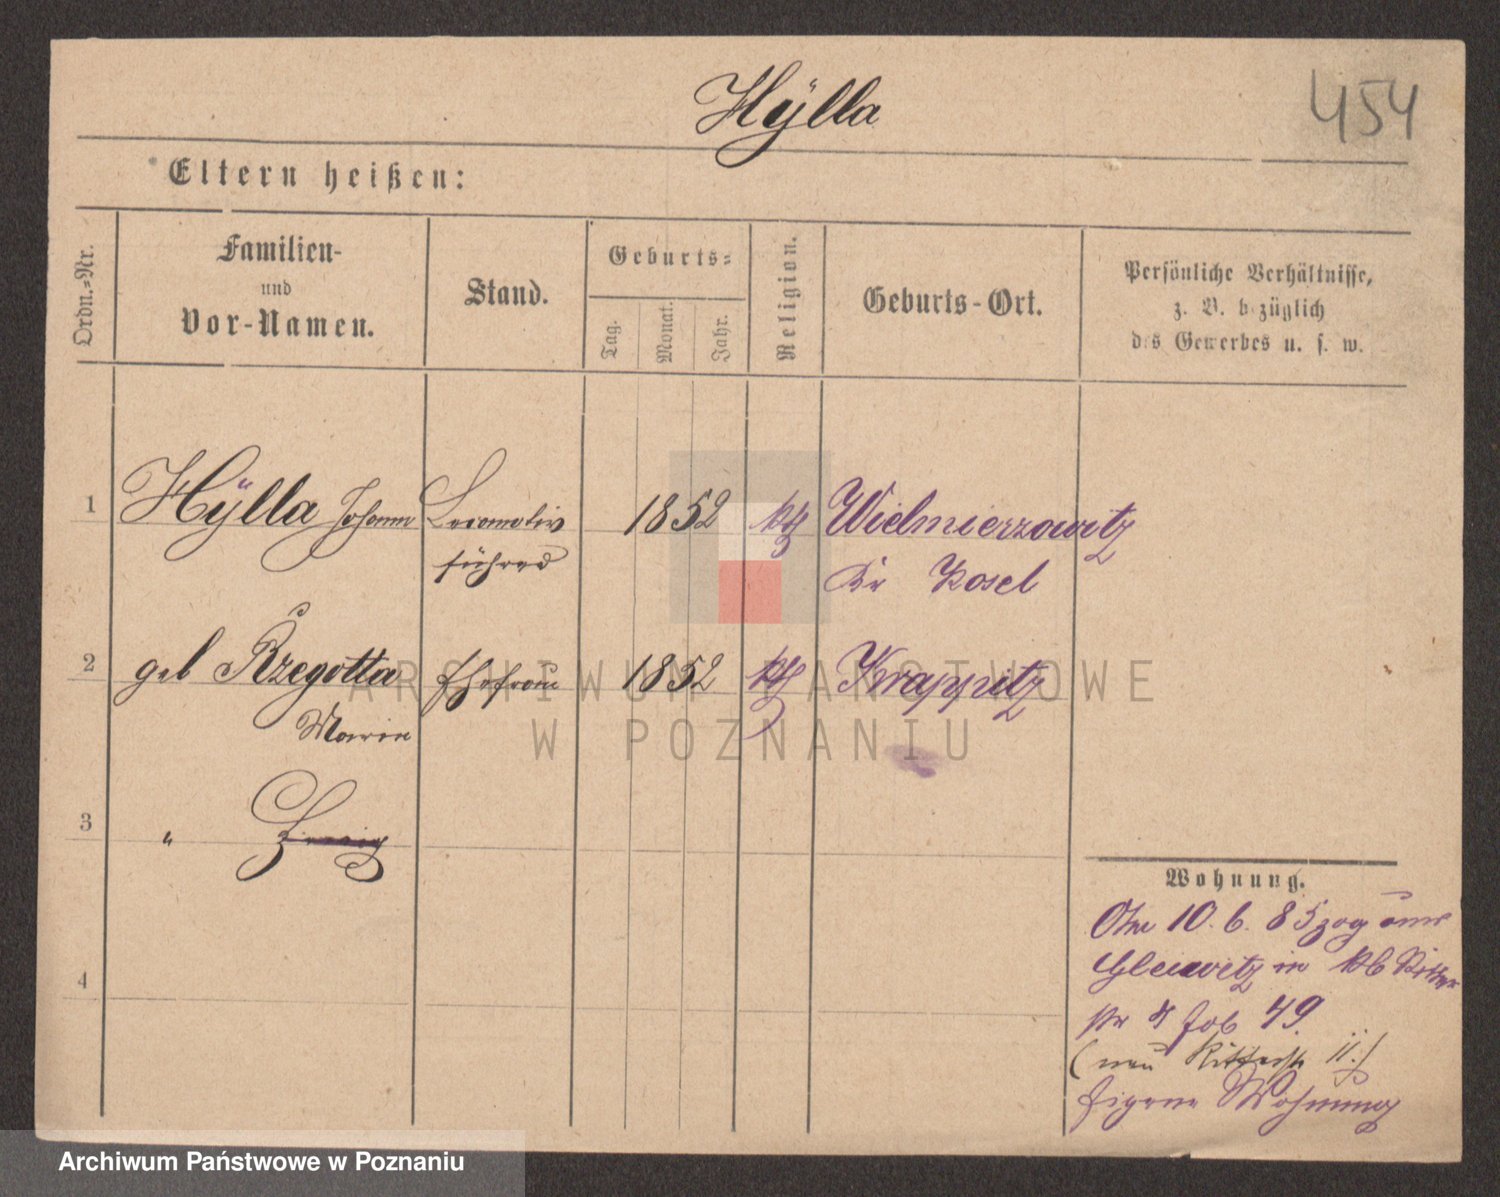 Hÿlla
454
Eltern heißen:
Ordn.-Nr.
Familien-
und
Vor-Namen.
Stand.
Geburts-
Tag.
Monat.
Jahr.
Religion.
Geburts-Ort.
Persönliche Verhältnisse,
z. B. bezüglich
des Gewerbes u. s. w.
1 Hÿlla Johann Locomotiv 1852 kth Wielmierzowitz
führer Kr Kosel
2 geb Rzegotta Ehefrau 1852 kth Krappitz
Marie
3 "
4
Wohnung.
Am 10. 6. 85 zog aus
Gleiwitz in
49
(neu Ritterstr 11.)
Eigene Wohnung
ARCHIWUM PAŃSTWOWE
W POZNANIU
Archiwum Państwowe w Poznaniu